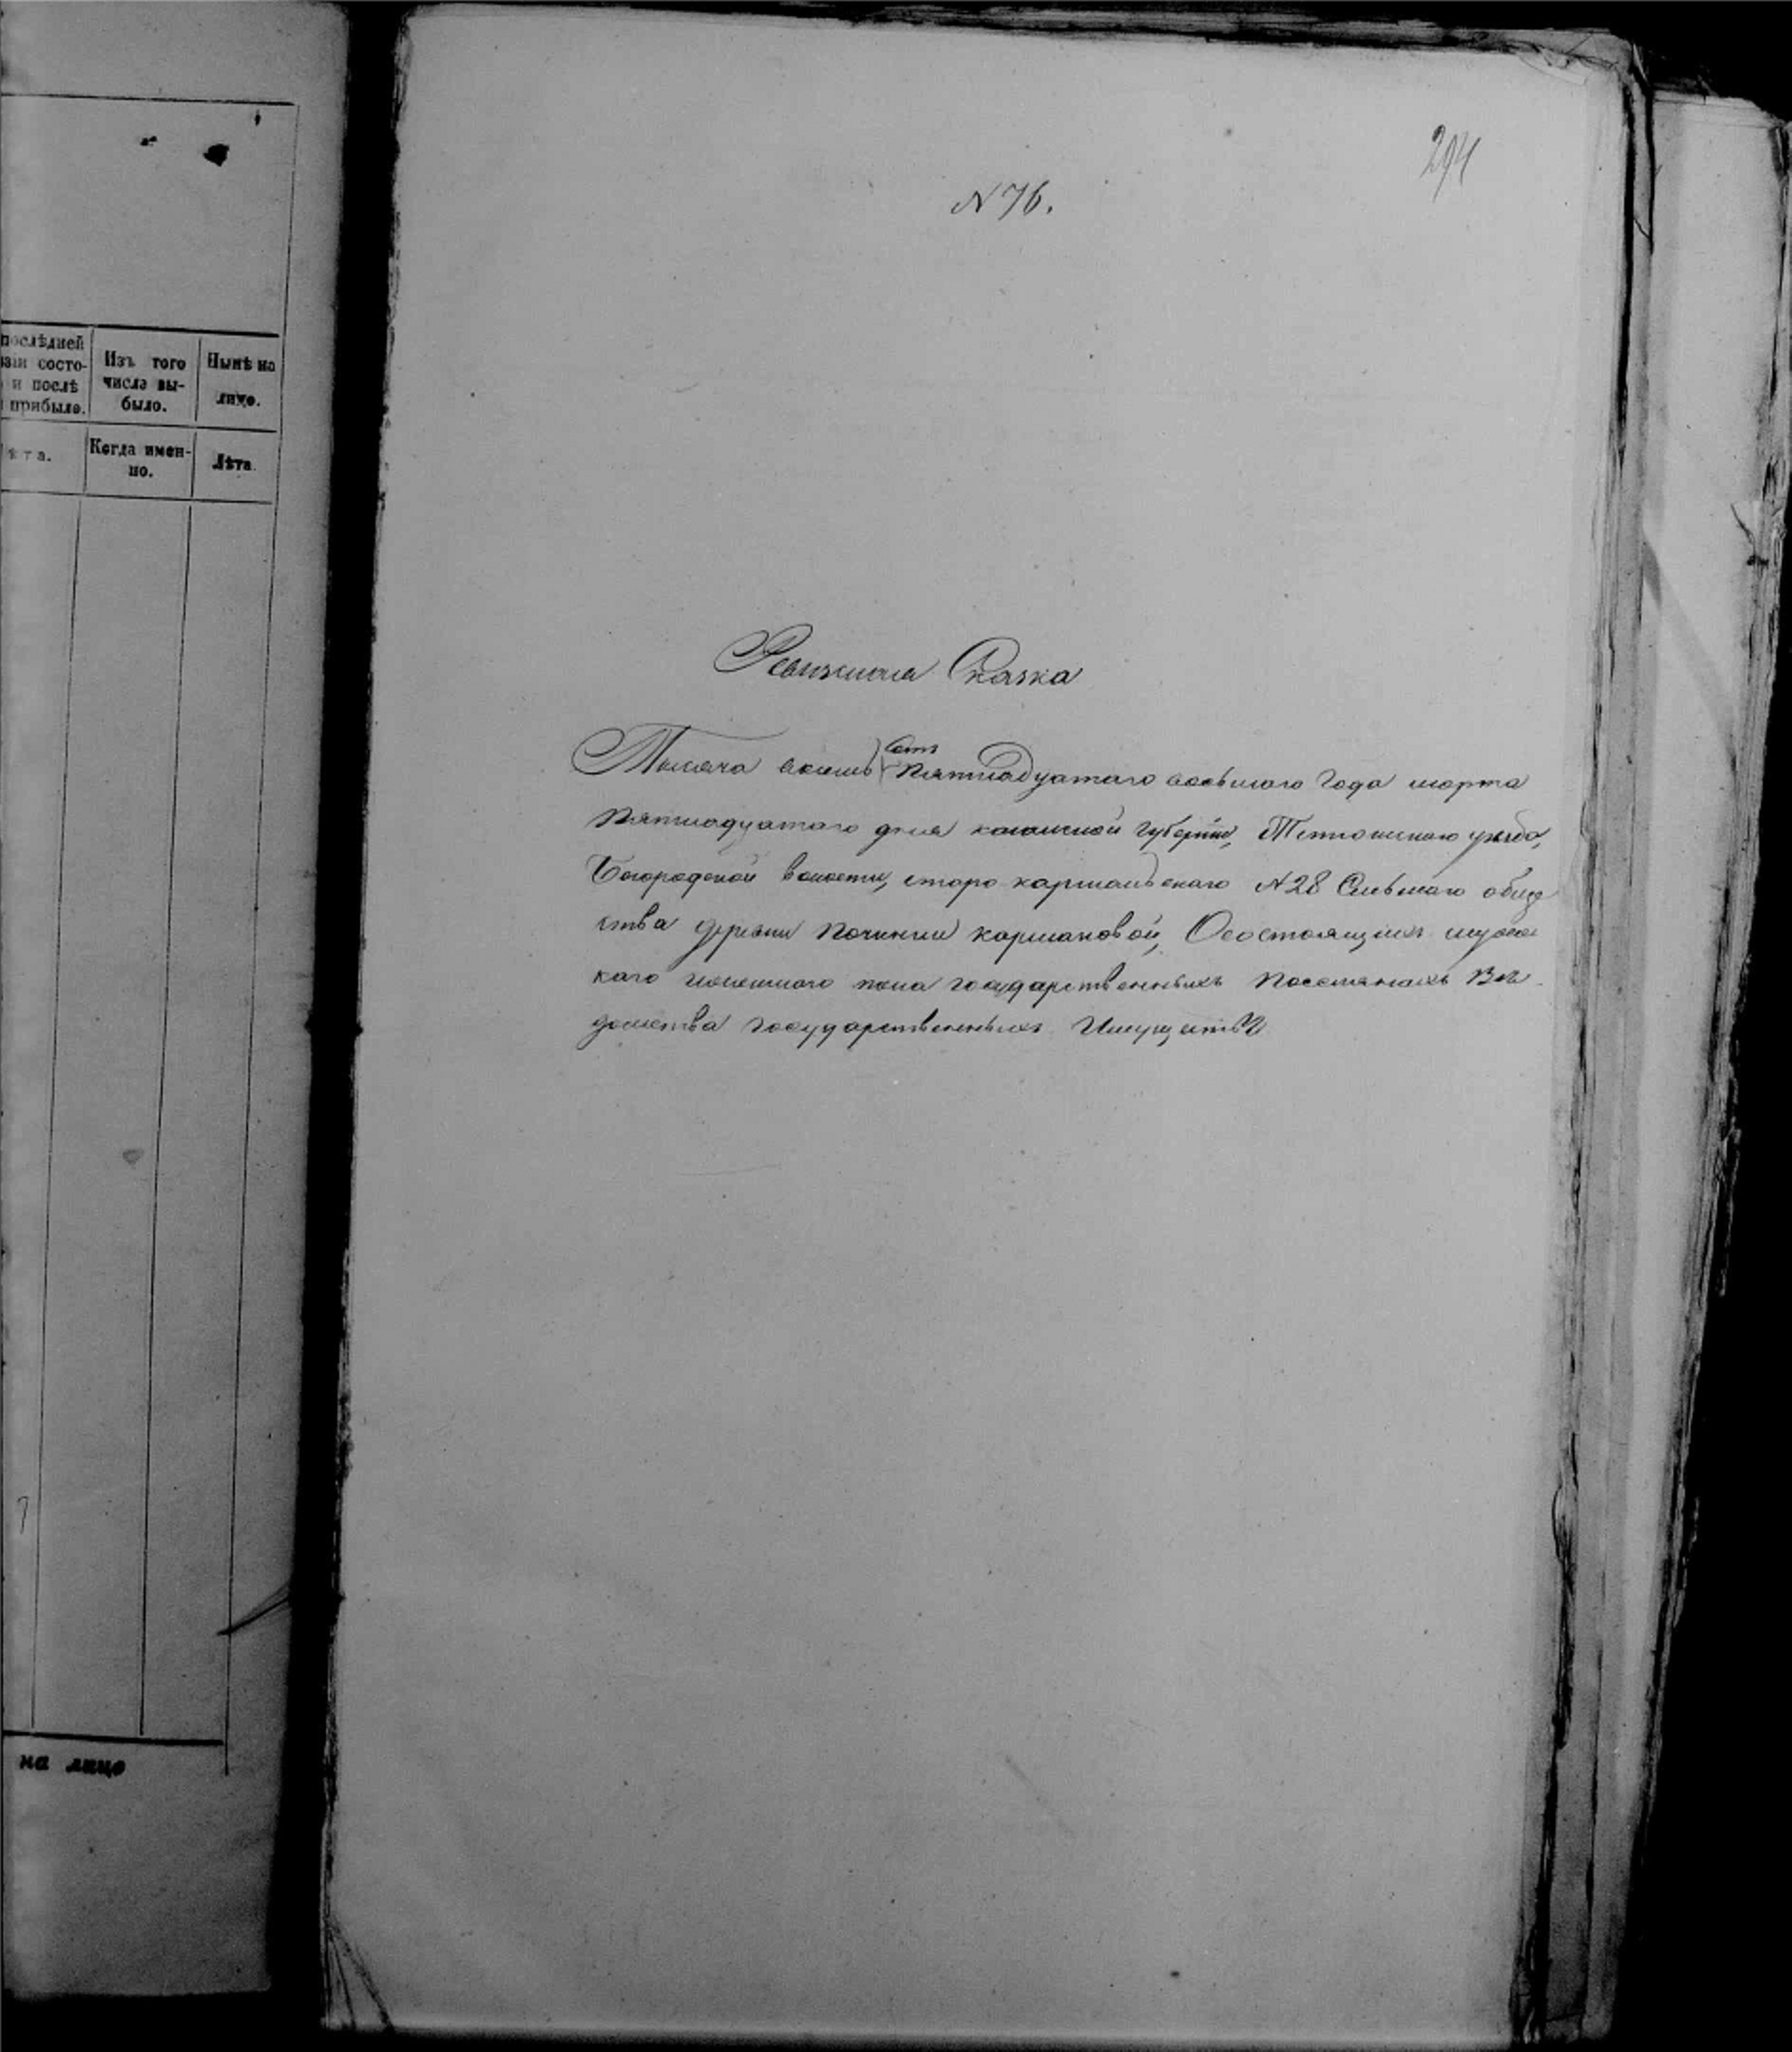 послѣдней
состо-
и послѣ
прибыло.
Изъ того
числа вы-
было.
Нынѣ на
лицо.
Лѣта.
Когда имен-
но.
Лѣта
на лицо
294
N 76.
Ревизская Сказка
Тысяча восемь сотъ пятидесятаго восьмаго Года марта
пятнадцатаго дня казанской губерніи, Тетюшскаго уѣзда,
Богородской волости, старо N 28 Сельскаго обще
ства деревни Починки кармановой, О состоящихъ мужес
каго женскаго пола государственныхъ поселянахъ Вѣ
домства государственныхъ Имуществъ